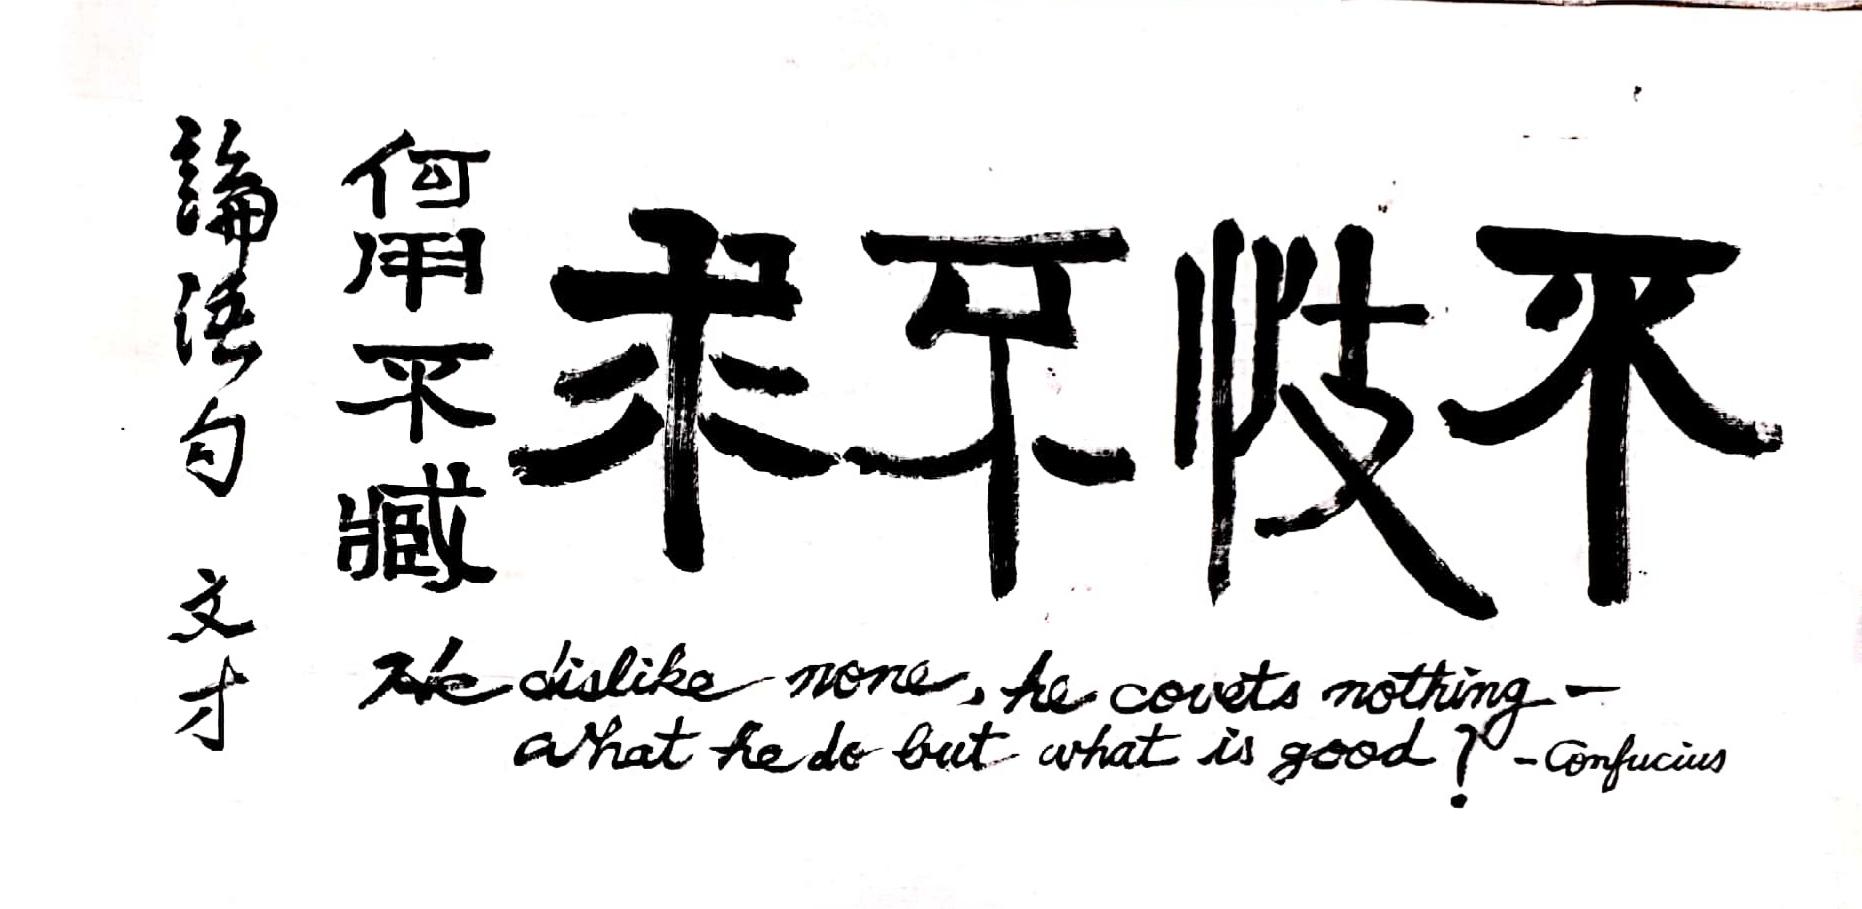 不忮不求
何用不臧
論語句 文才
He dislike none, he covets nothing —
what he do but what is good? - Confucius